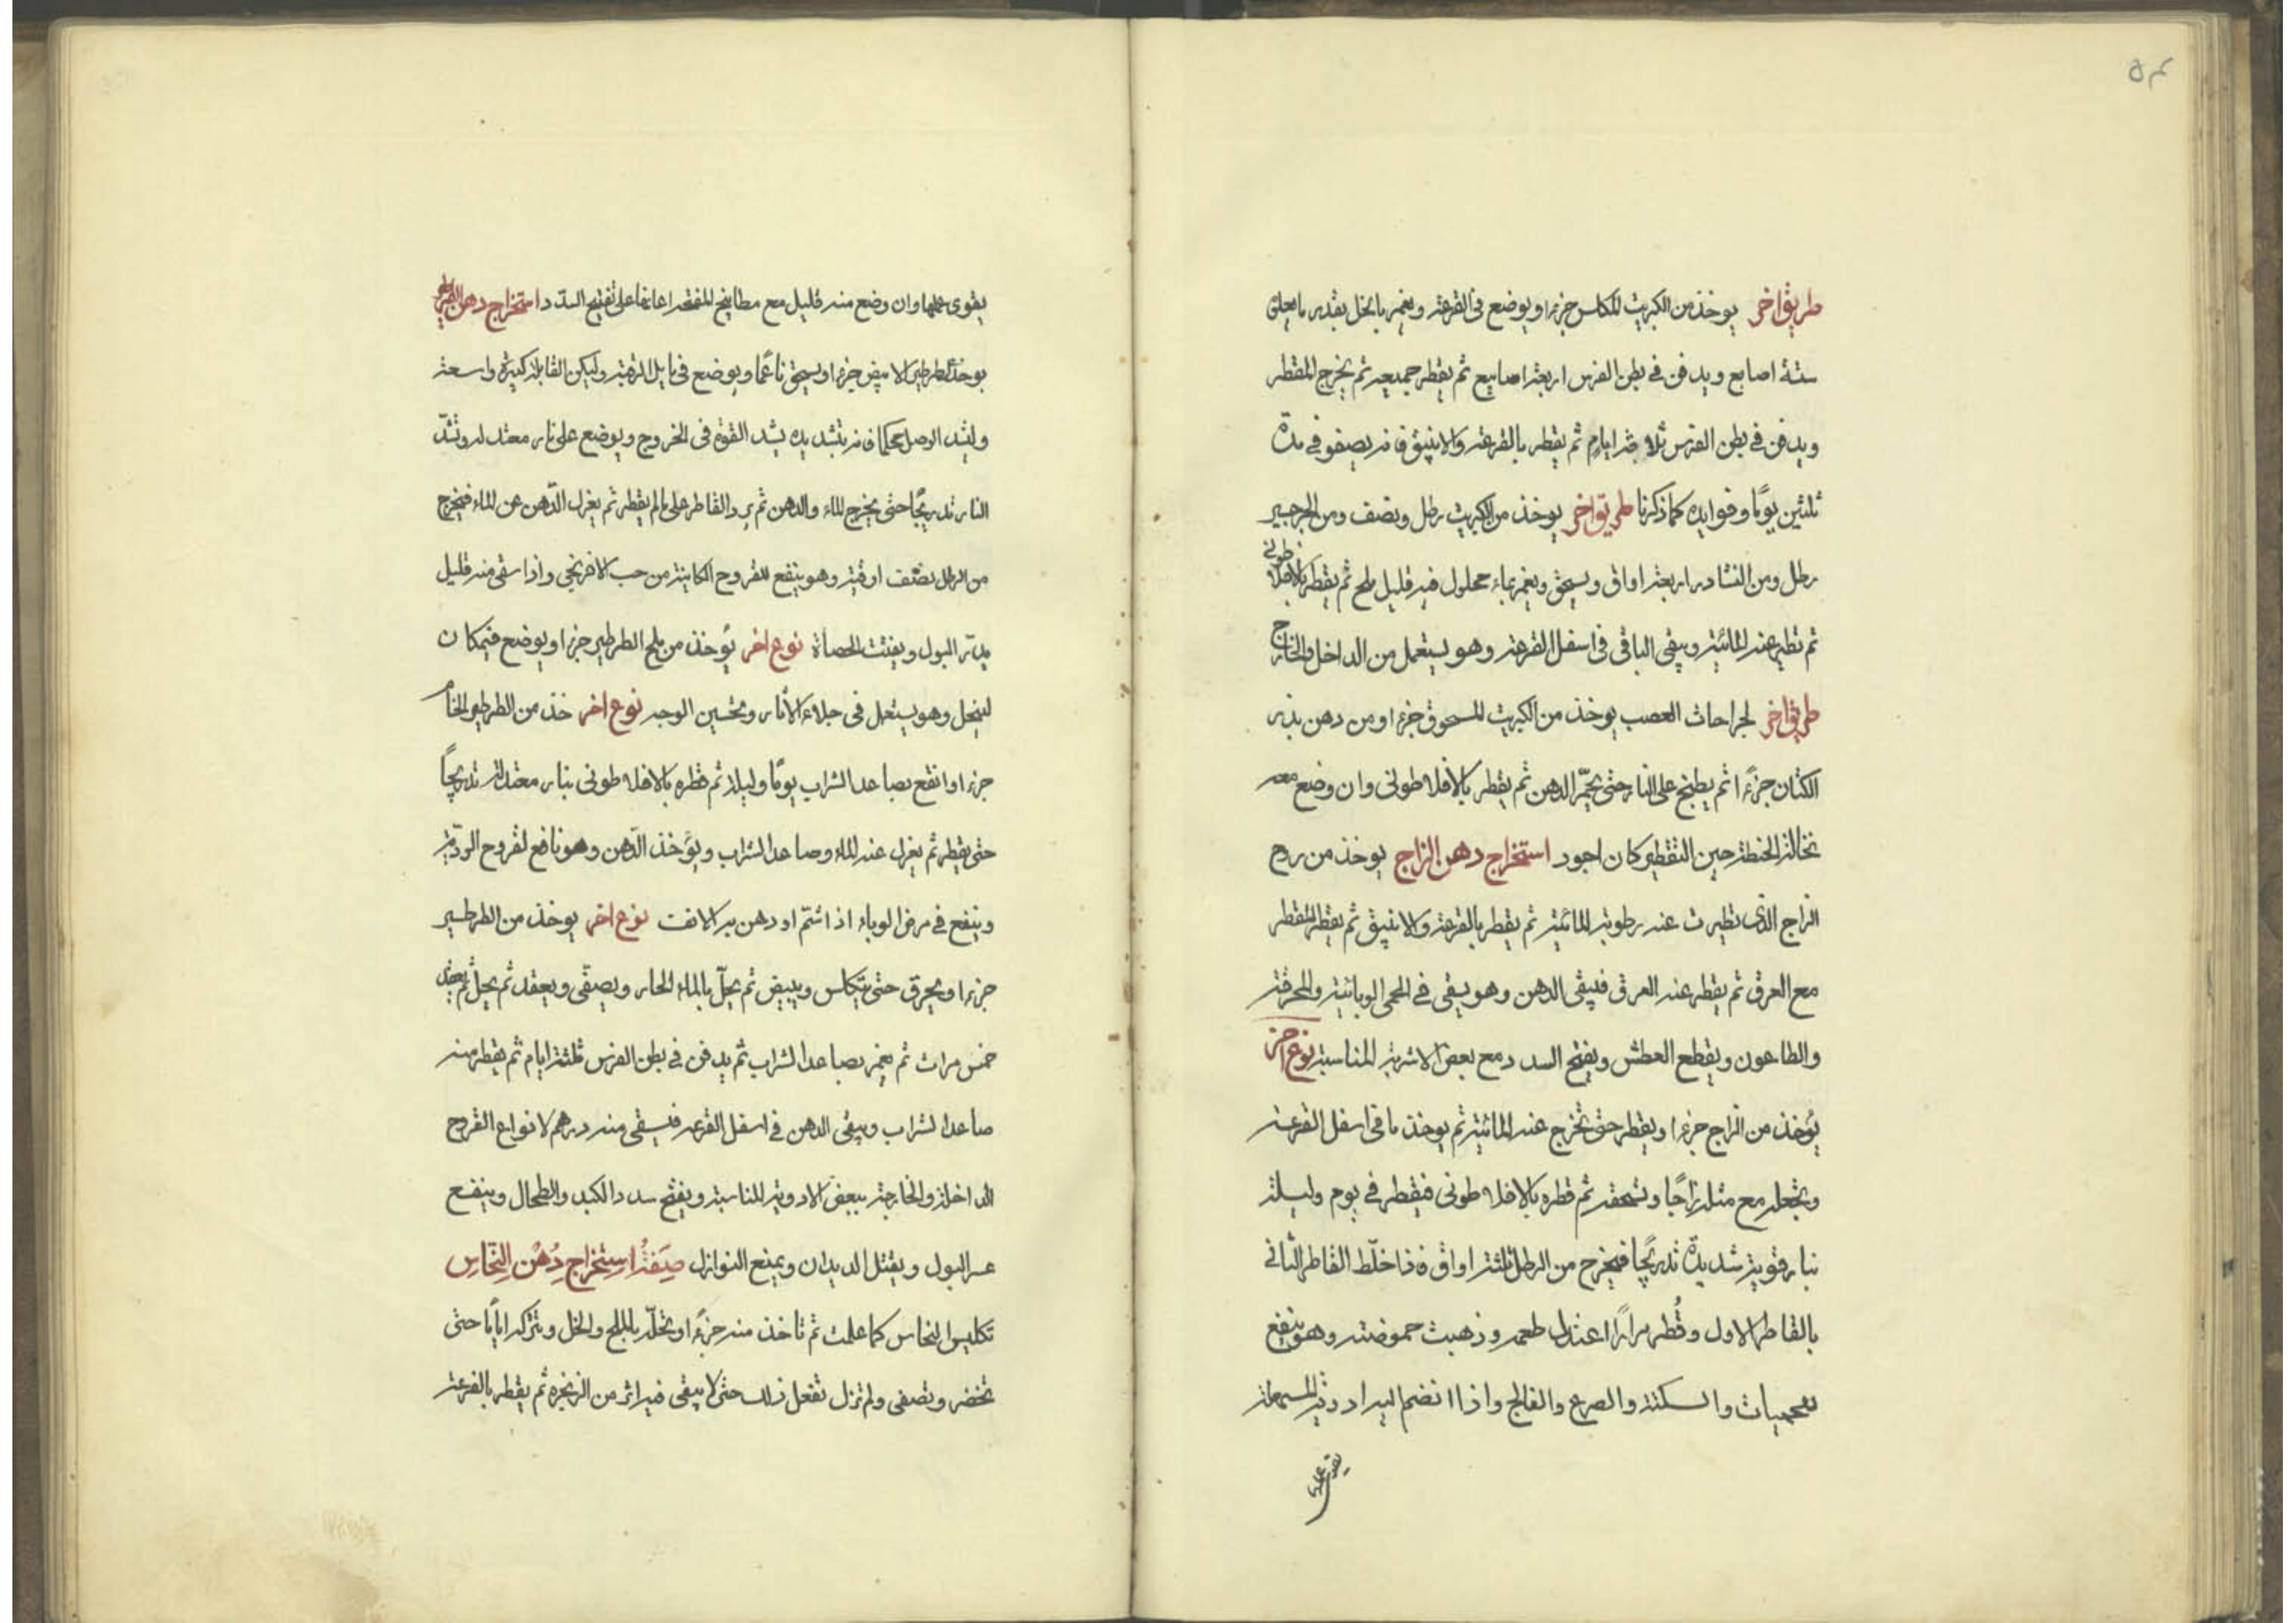 طريق اخر يوخذ من الكبريت المكلس جزءا ويوضع فى القرعة ويغمر بالخل بقدر ما يعلق
ستة اصابع ويدفن فى بطن الفرس اربعة اسابيع ثم يقطر جميعه ثم يخرج المقطر
ويدفن فى بطن الفرس ثلاثة ايام ثم يقطر بالقرعة والانبيق فانه يصفو فى مدة
ثلثين يومًا وفوايده كما ذكرنا طريق اخر يوخذ من الكبريت رطل ونصف ومن الجرجير
رطل ومن النشادر اربعة اواق ويسحق ويغمر بماء محلول فيه قليل ملح ثم يقطر بالافلاطونى
ثم تطير عنه المائية ويبقى الباقى فى اسفل القرعة وهو يستعمل من الداخل والخارج
طريق اخر لجراحات العصب يوخذ من الكبريت المسحوق جزءا ومن دهن بذر
الكتان جزءًا ثم يطبخ على النار حتى يحمّر الدهن ثم يقطر بالافلاطونى وان وضع معه
نخالة الحنطة حين التقطير كان اجود استخراج دهن الزاج يوخذ من روح
الزاج الذى تطيرت عنه رطوبته المائية ثم يقطر بالقرعة والانبيق ثم يقطر المقطر
مع العرق ثم يقطر عنه العرق فيبقى الدهن وهو يسقى فى الحمى الوبائية والمحرقة
والطاعون ويقطع العطش ويفتح السدد مع بعض الاشربة المناسبة نوع اخر
يُوخذ من الزاج جزءا ويقطر حتى تخرج عنه المائية ثم يوخذ ما فى اسفل القرعة
وتجعله مع مثله زاجًا وتسحقه ثم قطره بالافلاطونى فيقطر فى يوم وليلة
بنار قوية شديدة تدريجًا فيخرج من الرطل ثلثة اواق فاذا خلّط القاطر الثانى
بالقاطر الاول وقُطر مرارًا اعتدل طعمه وذهبت حموضته وهو ينفع
للحميات والسكتة والصرع والفالج واذا انضم اليه ادوية المسهلة
يقوى عملها
يقوى عملها وان وضع منه قليل مع مطابيخ المفتحة اعانها على تفتيح السدد استخراج دهن الطرطير
يوخذ الطرطير الابيض جزءا ويسحق ناعمًا ويوضع فى مايل الرقبة وليكن القابلة كبيرة واسعة
وليشد الوصل محكما فانه بتشديده يشد القوة فى الخروج ويوضع على نار معتدلة وتشدّ
النار تدريجًا حتى يخرج الماء والدهن ثم يرد القاطر على ما لم يقطر ثم يعزل الدّهن عن الماء فيخرج
من الرطل نصف اوقية وهو ينفع للقروح الكاينة من حب الافرنجى واذا سقى منه قليل
يدرّ البول ويفتت الحصاة نوع اخر يُوخذ من ملح الطرطير جزءا ويوضع فى مكان
لينحل وهو يستعمل فى جلاء الاثار وتحسين الوجه نوع اخر خذ من الطرطير الخام
جزءا وانقع بصاعد الشراب يومًا وليلة ثم قطره بالافلاطونى بنار معتدلة تدريجًا
حتى يقطر ثم يعزل عنه الماء وصاعد الشراب ويؤخذ الدّهن وهو نافع لقروح الرديّة
وينفع فى مرض الوباء اذا شمّ او دهن به الانف نوع اخر يوخذ من الطرطير
جزءا ويحرق حتى يتكلس ويبيض ثم يحلّ بالماء الحار ويصفّى ويعقد ثم يحل ثم يعقد
خمس مرات ثم يغمر بصاعد الشراب ثم يدفن فى بطن الفرس ثلثة ايام ثم يقطر منه
صاعد الشراب ويبقى الدهن فى اسفل القرعه فيسقى منه درهم لانواع القروح
الداخلة والخارجة ببعض الادوية المناسبة ويفتح سدد الكبد والطحال وينفع
عسر البول ويقتل الديدان ويمنع النوازل صِفَةُ اسِتخراجِ دُهْن النّحَاسِ
تكليس النحاس كما علمت ثم تاخذ منه جزءًا وتخلّله بالملح والخل وتتركه ايامًا حتى
تخضر وتصفى ولم تزل تفعل ذلك حتى لا يبقى فيه اثر من الزنجره ثم يقطر بالقرعة